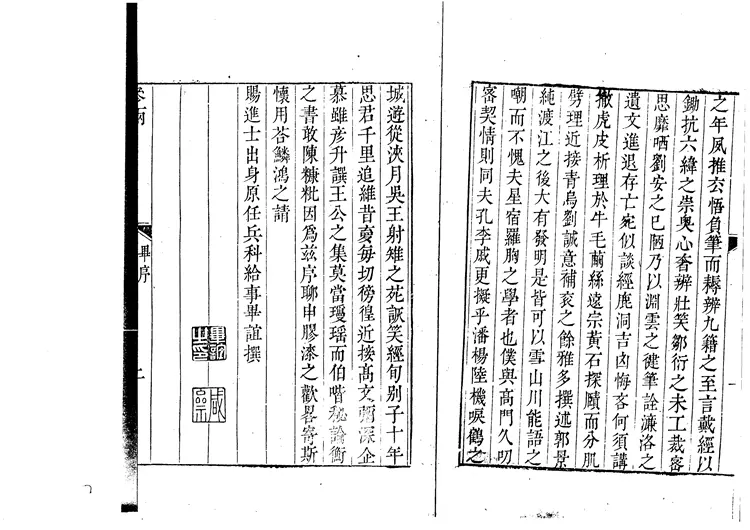 之年夙推玄悟負筆而耨辨九籍之至言戴經以
鋤抗六緯之崇奧心香辨壯笑鄒衍之未工裁審
思靡哂劉安之已陋乃以淵雲之健筆詮濂洛之
遺文進退存亡宛似談經鹿洞吉凶悔吝何須講
撤虎皮析理於牛毛繭絲遠宗黃石探賾而分肌
劈理近接青烏劉誠意補袞之餘雅多撰述郭景
純渡江之後大有發明是皆可以雪山川能語之
嘲而不愧夫星宿羅胸之學者也僕與高門久叨
密契情則同夫孔李戚更擬乎潘楊陸機唳鶴之
城遊從浹月吳王射雉之苑詼笑經旬别子十年
思君千里追維昔夢每切徬徨近接高文彌深企
慕雖彥升譔王公之集莫當瓊瑤而伯喈秘論衡
之書敢陳糠粃因爲兹序聊申膠漆之歡畧寄斯
懷用荅鱗鴻之請
賜進士出身原任兵科給事畢誼撰
畢序
二